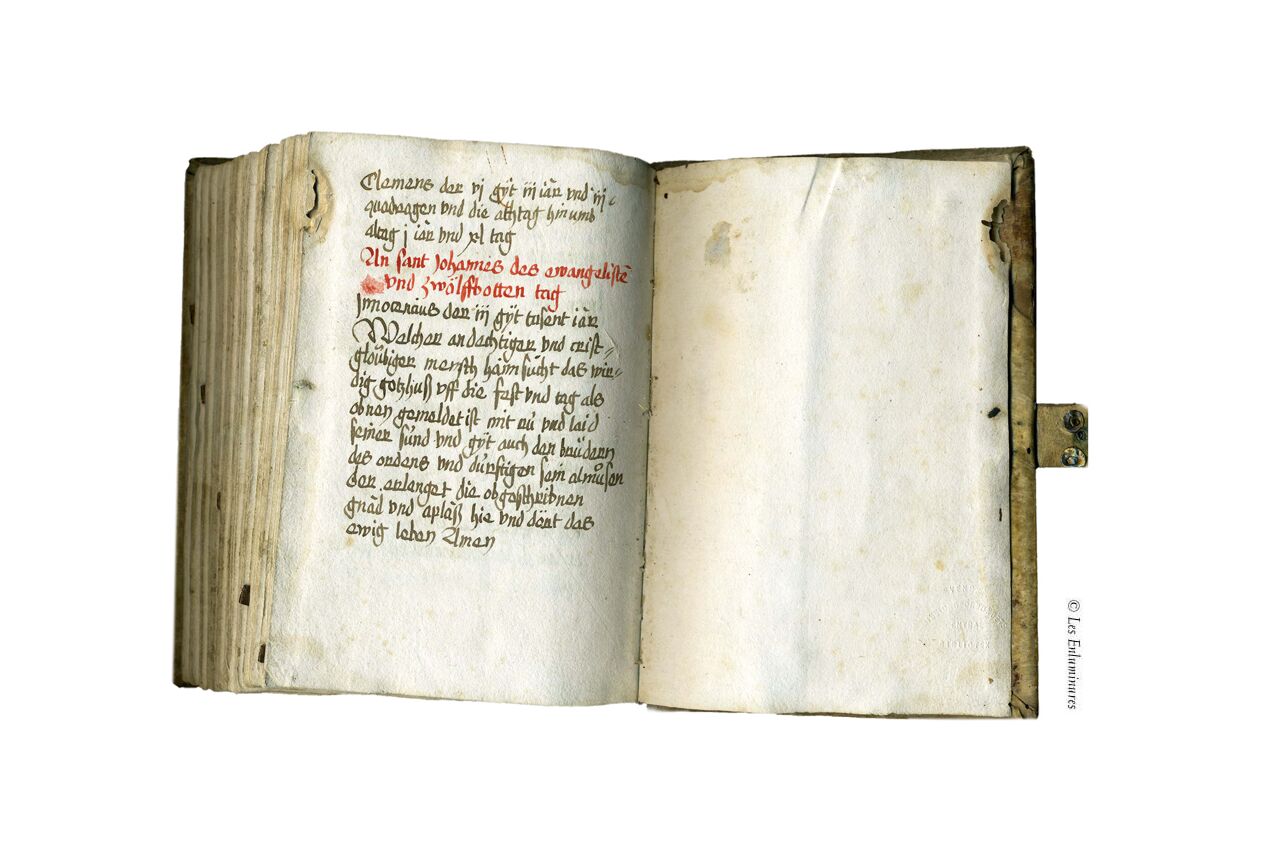 Clemens der vj gyt iij iar vnd iij
quadragen vnd die achtag hinumb
altag j iar vnd xl tag
An sant Johannes des ewangelistē
vnd zwölffbotten tag
Jnnocencius der iij gyt tusent iar
Welcher andechtiger vnd crist-
glöubiger mensch haimsücht das wir-
dig gotzhuß vff die fest vnd tag als
obnen gemeldet ist mit rü vnd laid
seiner sünd vnd gyt auch den brüdern
des ordens vnd dürftigen sein almůsen
der erlanget die obgeschribnen
gnad vnd aplaß hie vnd dört das
ewig leben Amen
© Les Enluminures